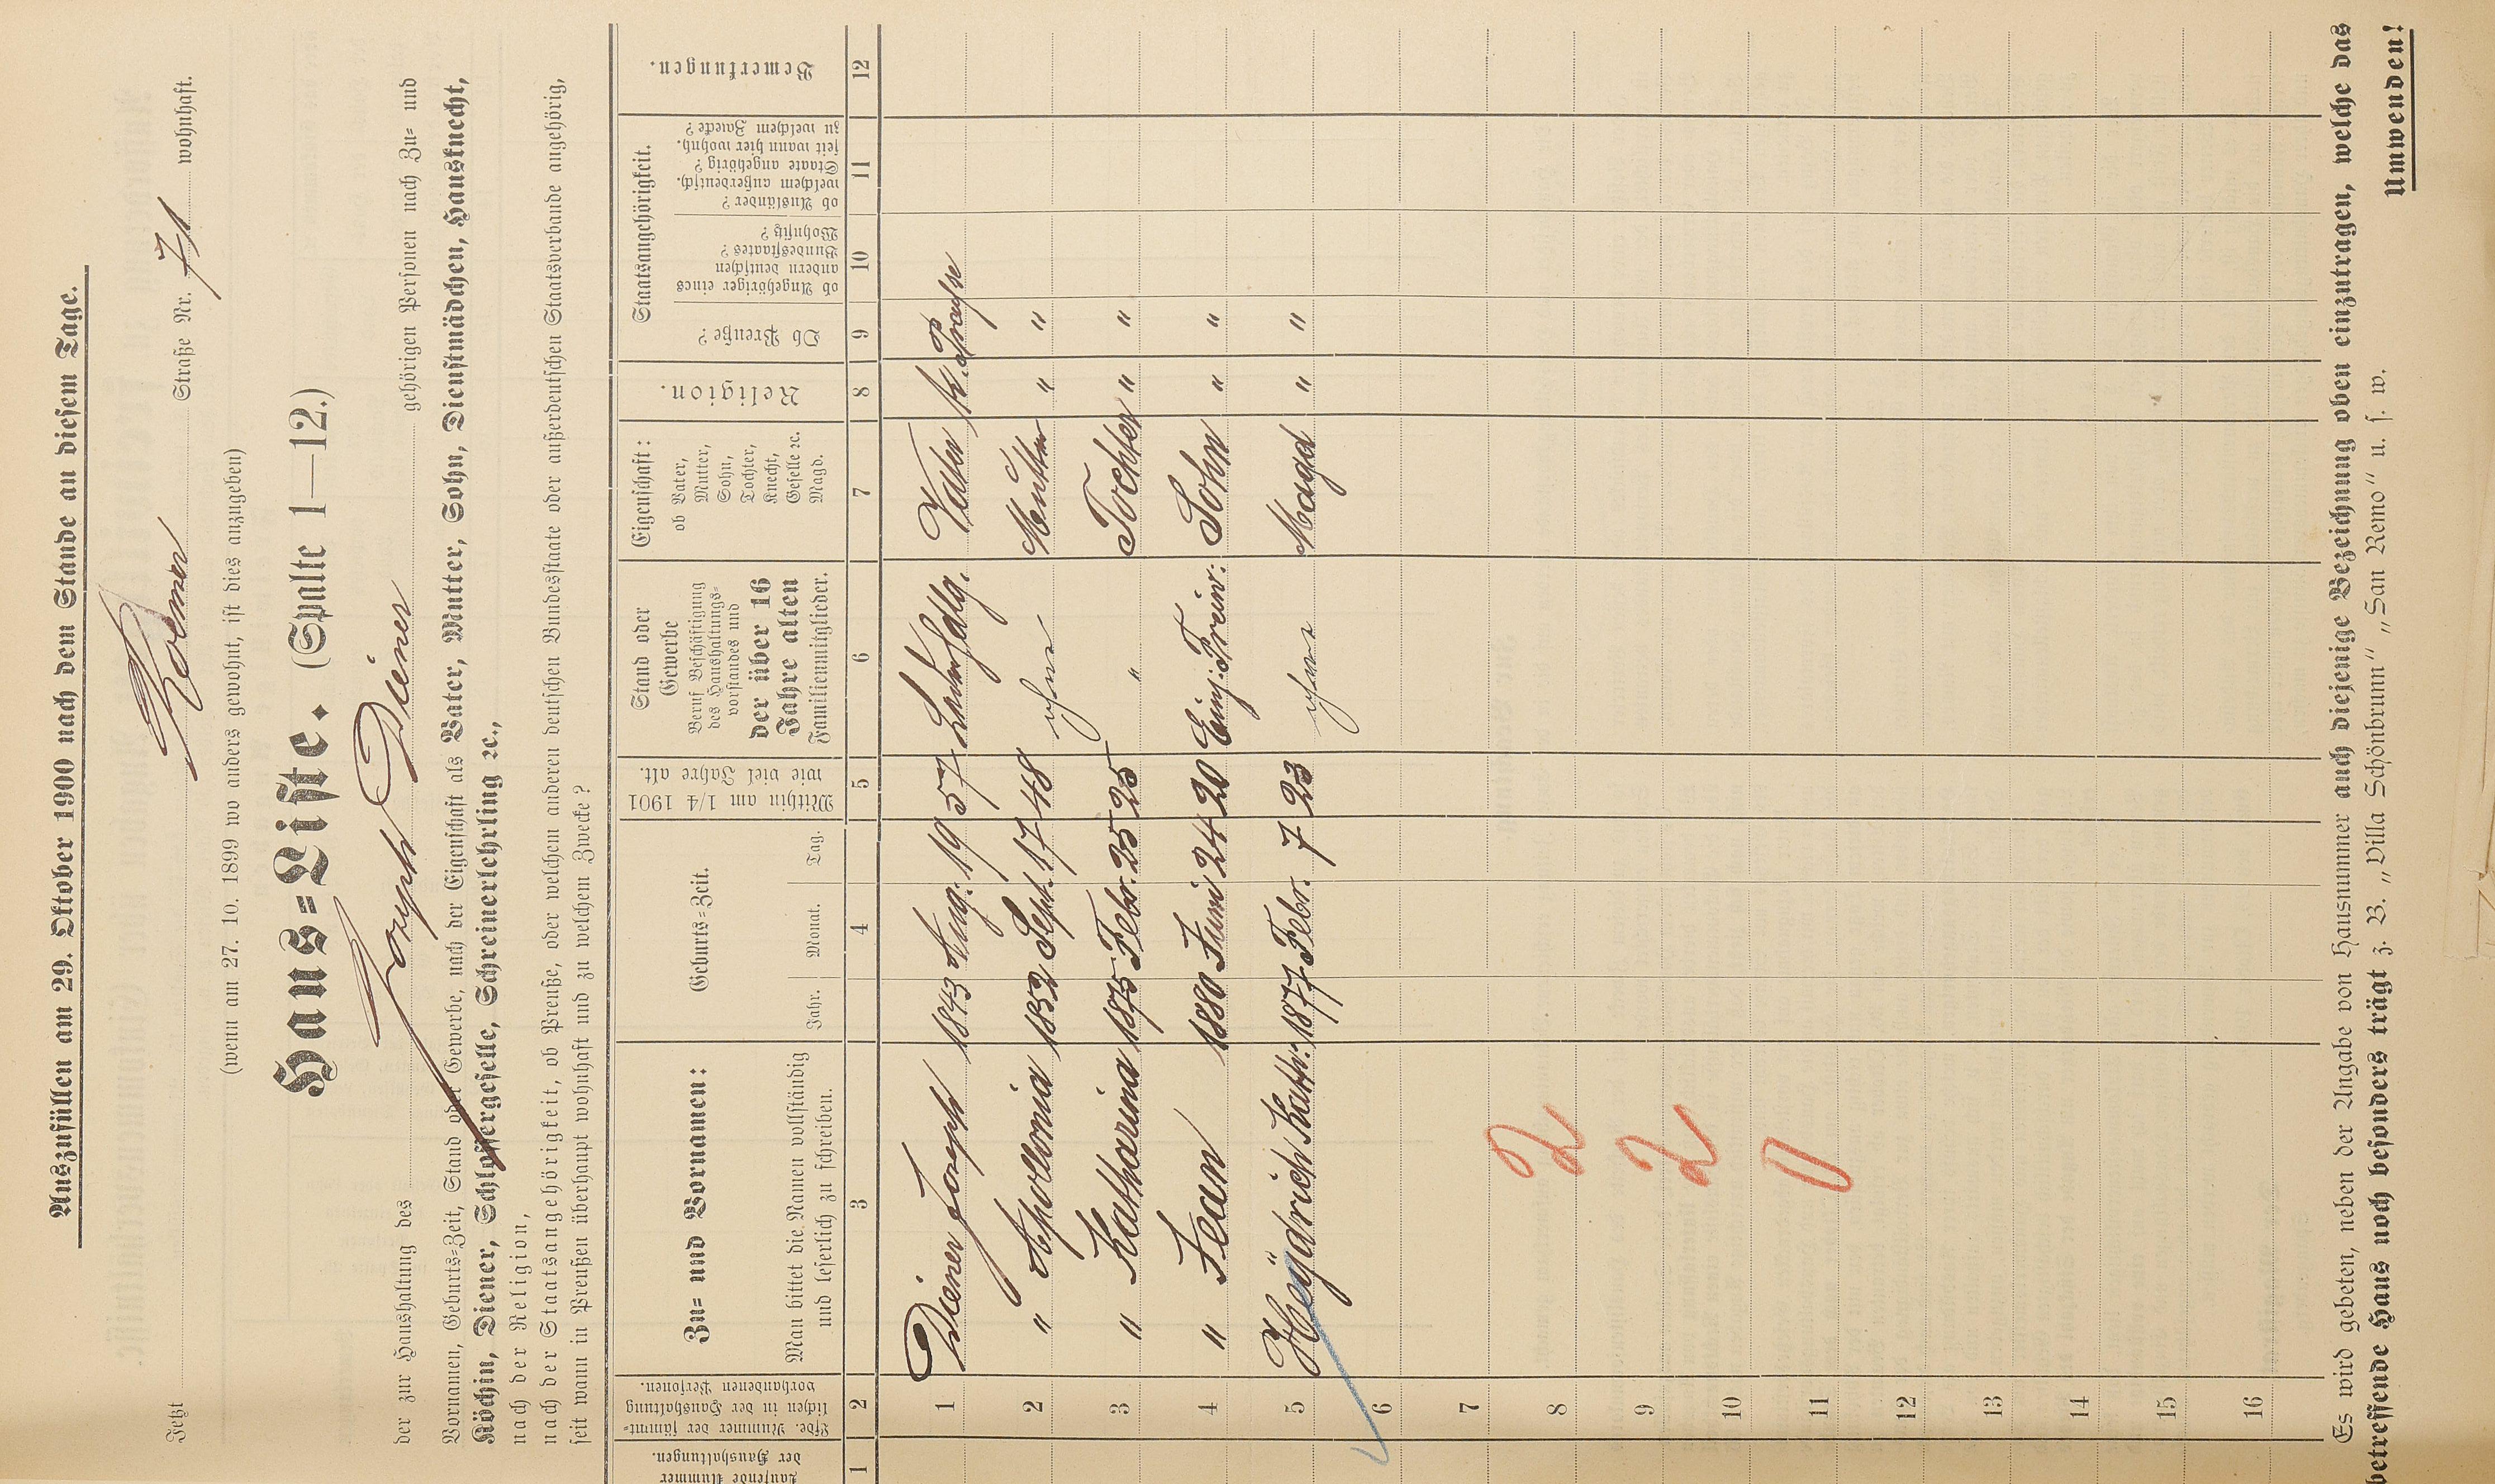 Auszufüllen am 29. Oktober 1900 nach dem Stande an diesem Tage.
Jetzt Roemer Straße Nr. 71 wohnhaft.
(wenn am 27. 10. 1899 wo anders gewohnt, ist dies anzugeben)
Haus=Liste. (Spalte 1—12.)
der zur Haushaltung des Joseph Diener gehörigen Personen nach Zu= und
Vornamen, Geburts=Zeit, Stand oder Gewerbe, nach der Eigenschaft als Vater, Mutter, Sohn, Dienstmädchen, Hausknecht,
Köchin, Diener, Schlossergeselle, Schreinerlehrling ꝛc.,
nach der Religion,
nach der Staatsangehörigkeit, ob Preuße, oder welchem anderen deutschen Bundesstaate oder außerdeutschen Staatsverbande angehörig,
seit wann in Preußen überhaupt wohnhaft und zu welchem Zwecke?
Laufende Nummer
der Haushaltungen.
Lfde. Nummer der sämmt=
lichen in der Haushaltung
vorhandenen Personen.
Zu= und Vornamen:
Man bittet die Namen vollständig
und leserlich zu schreiben.
Geburts=Zeit.
Jahr. Monat. Tag.
Mithin am 1/4 1901
wie viel Jahre alt.
Stand oder
Gewerbe
Beruf Beschäftigung
des Haushaltungs=
vorstandes und
der über 16
Jahre alten
Familienmitglieder.
Eigenschaft:
ob Vater,
Mutter,
Sohn,
Tochter,
Knecht,
Geselle ꝛc.
Magd.
Religion.
Staatsangehörigkeit.
Ob Preuße?
ob Angehöriger eines
andern deutschen
Bundesstaates?
Wohnsitz?
ob Ausländer?
welchem außerdeutsch.
Staate angehörig?
seit wann hier wohnh.
zu welchem Zwecke?
Bemerkungen.
1 2 3 4 5 6 7 8 9 10 11 12
1 Diener Joseph 1843 Aug: 19 57 Vater K. Preuße
2 " Apollonia 1852 Sept. 17 48 ohne Mutter " "
3 " Katharina 1875 Febr. 25 25 " Tochter " "
4 " Jean 1880 Juni 24 20 Einj: Freiw: Sohn " "
5 Heÿdrich Kath: 1877 Febr. 7 23 ohne Magd " "
6
7
8 2
9 2
10
11 0
12
13
14
15
16
Es wird gebeten, neben der Angabe von Hausnummer auch diejenige Bezeichnung oben einzutragen, welche das
betreffende Haus noch besonders trägt z. B. „Villa Schönbrunn" „San Remo" u. s. w.
Umwenden!